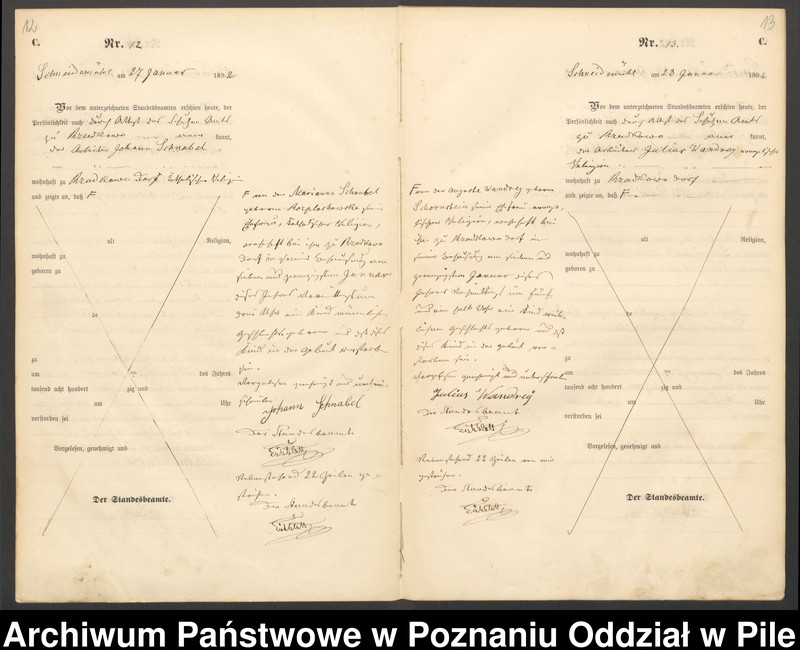 12
C.
Nr. 12
Schneidemühl am 27 Januar 1892
Vor dem unterzeichneten Standesbeamten erschien heute, der
Persönlichkeit nach durch Attest des Schulzen Amts
zu kannt,
der Arbeiter Johann Schnabel
wohnhaft zu Dorf katholischer Religion
und zeigte an, daß F
alt Religion,
wohnhaft zu
geboren zu
de
zu
am ten des Jahres
tausend acht hundert zig und
um Uhr
verstorben sei
Vorgelesen, genehmigt und
Der Standesbeamte.
F von der Marianna Schnabel
geborenen seiner
Ehefrau, katholischer Religion,
wohnhaft bei ihm zu
Dorf in seiner Behausung am
sieben und zwanzigsten Januar
dieses Jahres Vormittags um
drei Uhr ein Kind männlichen
Geschlechts geboren und daß dieses
Kind in der Geburt verstorben
sei.
Vorgelesen genehmigt und unter-
schrieben
Johann Schnabel
Der Standesbeamte
Vorstehend 22 Zeilen ge-
strichen.
Der Standesbeamte
13
Nr. 13.
C.
Schneidemühl am 23 Januar 189
Vor dem unterzeichneten Standesbeamten erschien heute, der
Persönlichkeit nach durch Attest des Schulzen Amts
zu kannt,
der Arbeiter Julius Wandrey evangelischer
Religion
wohnhaft zu dorf
und zeigte an, daß F
alt Religion,
wohnhaft zu
geboren zu
de
zu
am ten des Jahres
tausend acht hundert zig und
um Uhr
verstorben sei
Vorgelesen, genehmigt und
Der Standesbeamte.
F von der Auguste Wandrey geborenen
Schornstein seiner Ehefrau evange-
lischer Religion, wohnhaft bei
ihm zu dorf in
seiner Behausung am sieben und
zwanzigsten Januar dieses
Jahres Nachmittags um fünf
und ein halb Uhr ein Kind weib-
lichen Geschlechts geboren und daß
dieses Kind in der Geburt ver-
storben sei.
Vorgelesen genehmigt und unterschrieben
Julius Wandrey
Der Standesbeamte
Nebenstehend 22 Zeilen von mir
gestrichen.
Der Standesbeamte
Archiwum Państwowe w Poznaniu Oddział w Pile